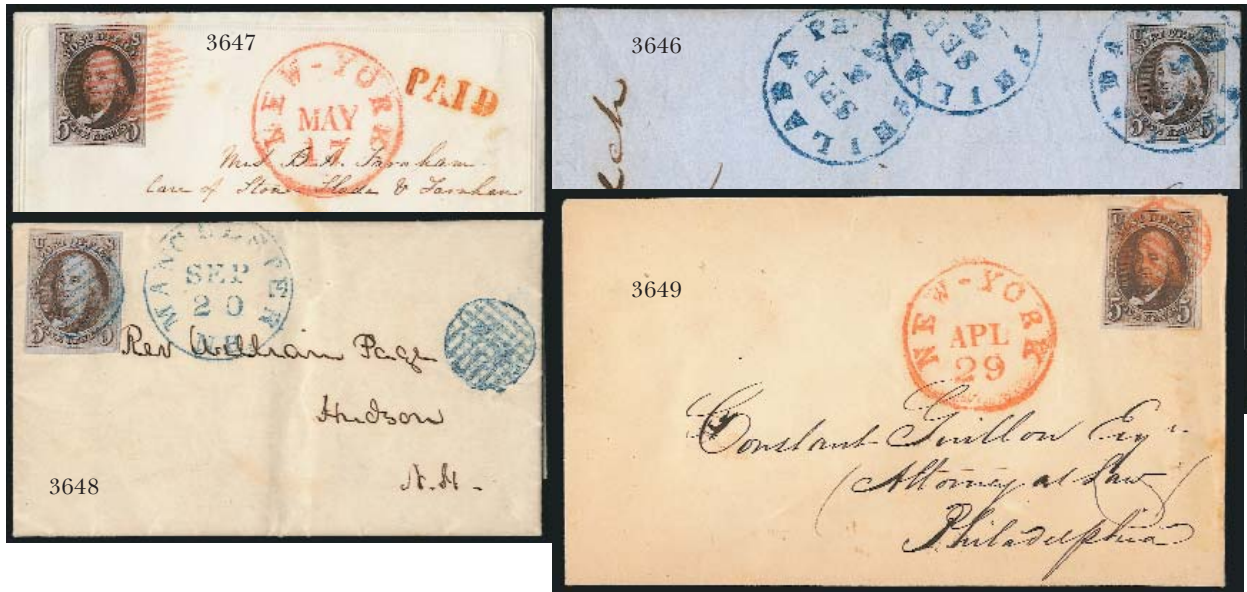 3647
NEW-YORK
MAY
17
PAID
Mrs B. A. Farnham
Care of Stone Slade & Farnham
3646
PHILADA Pa
SEP
PHILADA
SEP
POST OFFICE
5 5
MANCHESTER
SEP
20
N.H.
Rev William Page
Hudson
N.H.
3648
3649
NEW-YORK
APL
29
Constant Guillon Esqr
(Attorney at Law)
Philadelphia